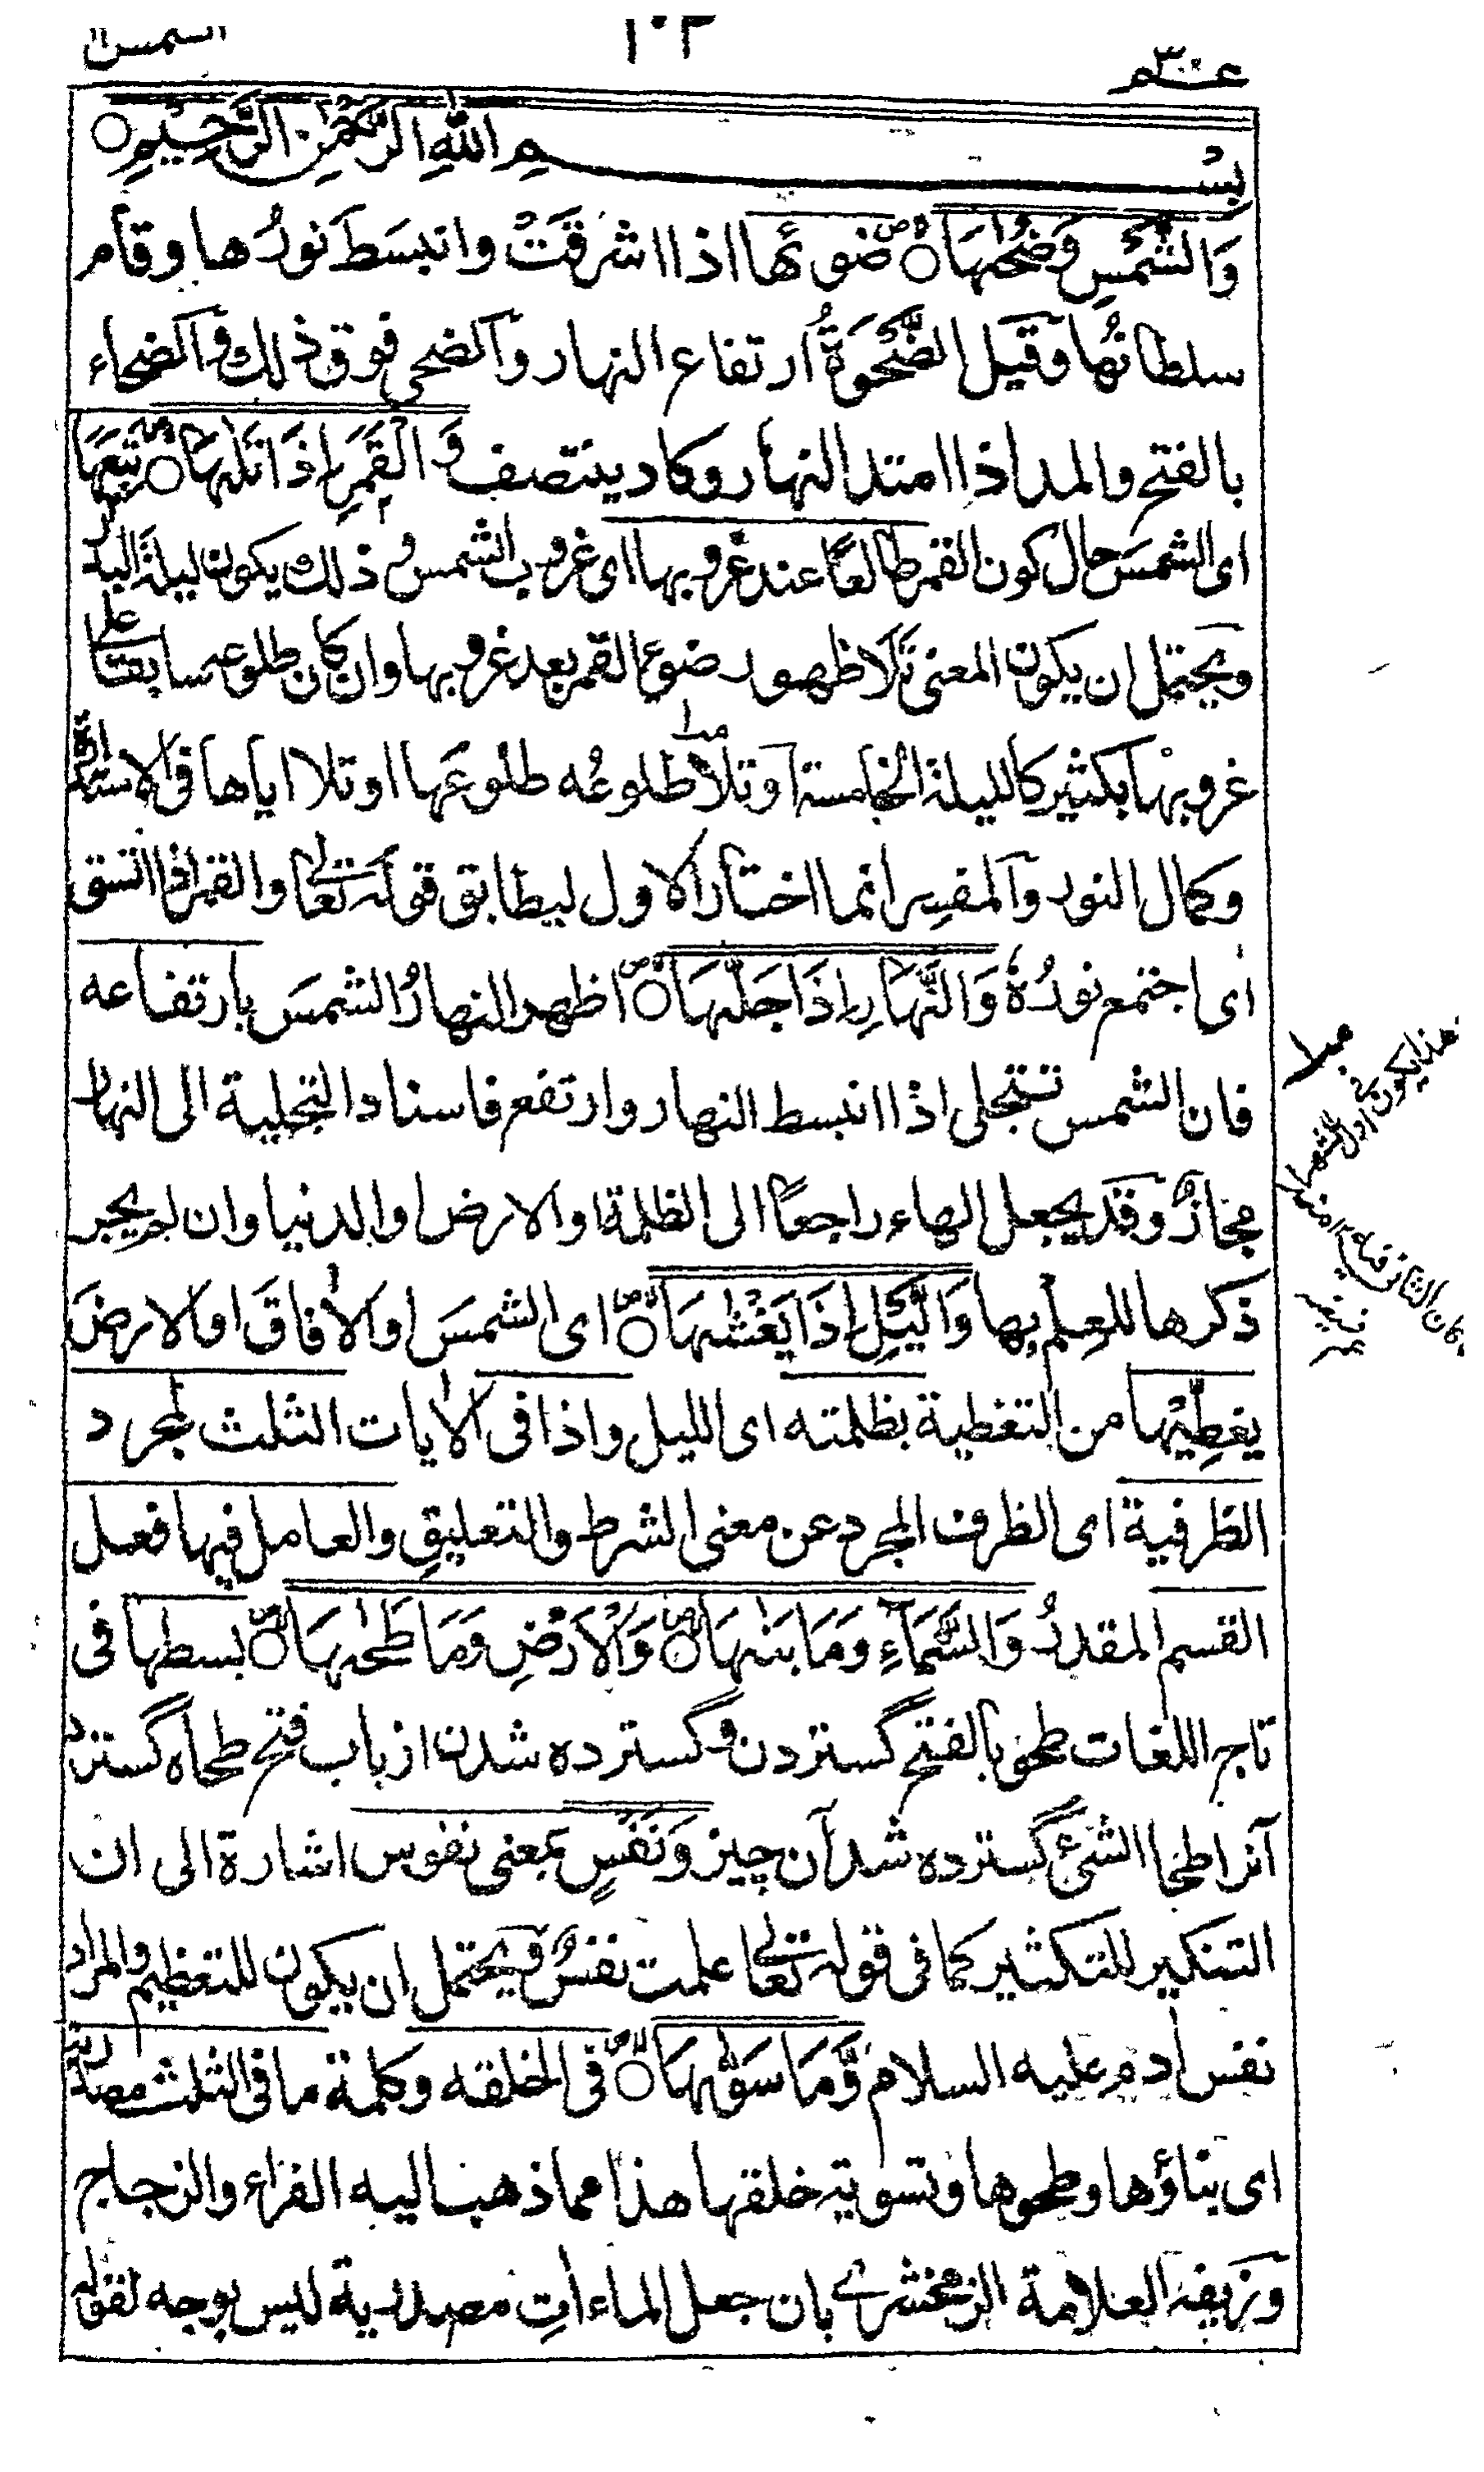 عم ٣٠
١٠٢
الشمس ٩١
بِسْمِ اللهِ الرَّحْمٰنِ الرَّحِيْمِ
وَالشَّمْسِ وَضُحٰىهَا ضوئها اذا اشرقَتْ وانبسَطَ نورُها وقام
سلطانُها وقيل الضَّحْوَةُ ارتفاع النهار والضحى فوق ذلك والضحاء
بالفتح والمد اذا امتد النهار وكاد ينتصف وَ الْقَمَرِ اِذَا تَلٰىهَا تبِعَها
اى الشمسَ حال كون القمر طالعًا عند غروبها اى غروب الشمس و ذلك يكون ليلةَ البدر
ويحتمل ان يكون المعنى تَلا ظهور ضوء القمر بعد غروبها وان كان طلوعه سابقًا على
غروبها بكثير كالليلة الخامسة او تلا طلوعُه طلوعَها او تلا اياها فى الاستدارة
وكمال النور والمفسر انما اختار الاول ليطابق قوله تعالى والقمر اذا اتسق
اى اجتمع نورُهٗ وَالنَّهَارِ اِذَا جَلّٰىهَا اظهر النهارُ الشمسَ بارتفاعه
فان الشمس تتجلى اذا انبسط النهار وارتفع فاسناد التجلية الى النهار
مجازٌ وقد يجعل الهاء راجعًا الى الظلمة او الارض او الدنيا وان لم يجر
ذكرها للعلم بها وَالَّيْلِ اِذَا يَغْشٰىهَا اى الشمسَ او الآفاقَ او الارضَ
يغطِّيْها من التغطية بظلمته اى الليل واذا فى الآيات الثلث لمجرد
الظرفية اى الظرف المجرد عن معنى الشرط والتعليق والعامل فيها فعل
القسم المقدرُ وَالسَّمَآءِ وَمَا بَنٰىهَا وَالْاَرْضِ وَمَا طَحٰىهَا بسطها فى
تاج اللغات طحو بالفتح گستردن و گسترده شدن از باب فتح طحاه گسترد
آنرا طحا الشئ گسترده شد آن چيز وَنَفْسٍ بمعنى نفوس اشارة الى ان
التنكير للتكثير كما فى قوله تعالى علمت نفسٌ فيحتمل ان يكون للتعظيم والمراد
نفس آدم عليه السلام وَّمَا سَوّٰىهَا فى الخلقه وكلمة ما فى الثلث مصدرية
اى بناؤها وطحوها وتسوية خلقها هذا مما ذهب اليه الفراء والزجاج
وزيفه العلامة الزمخشرى بان جعل الماءاتِ مصدرية ليس بوجه لقوله
هذا يكون فى اول الشهر